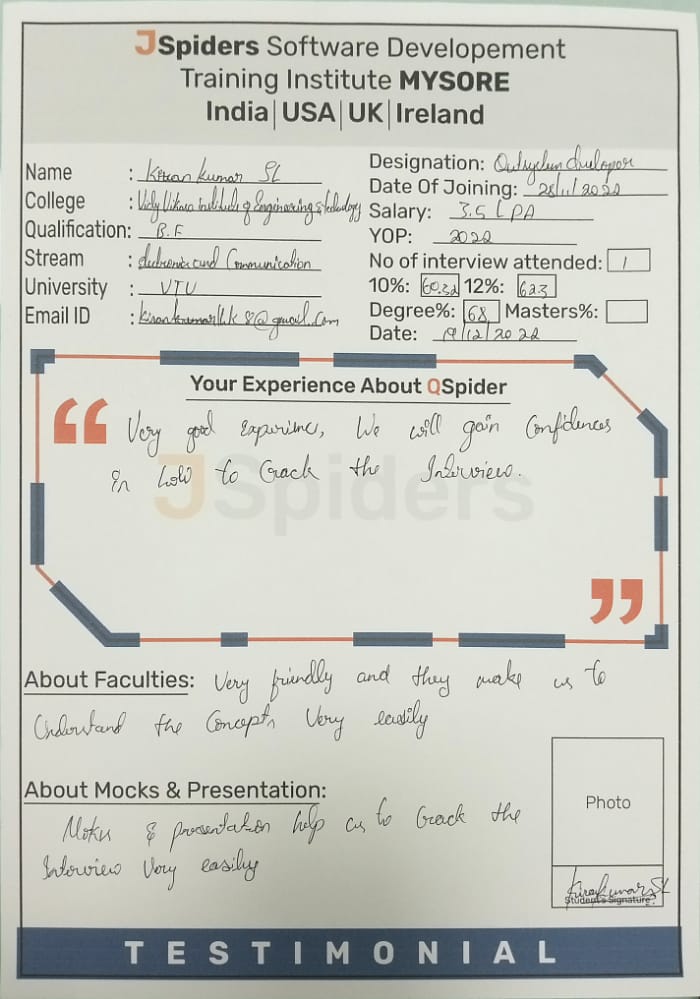 JSpiders Software Developement
Training Institute MYSORE
India|USA|UK|Ireland
Name : Kiran kumar SL
College : Vidya Vikas Institute of Engineering & Technology
Qualification: B.E
Stream : Electronics and Communication
University : VTU
Email ID :
Designation: developer
Date Of Joining: 28/11/2022
Salary: 3.5 LPA
YOP: 2022
No of interview attended: 1
10%: 60.32 12%: 62.3
Degree%: 68 Masters%:
Date: 19/12/2022
Your Experience About QSpider
“ Very good Experience, We will gain Confidences
in how to Crack the Interview. ”
JSpiders
About Faculties: Very friendly and they make us to
Understand the Concepts Very easily
About Mocks & Presentation:
Moks & presentation help us to Crack the
Interview Very easily
Photo
Kirankumar SL
Student's Signature
TESTIMONIAL